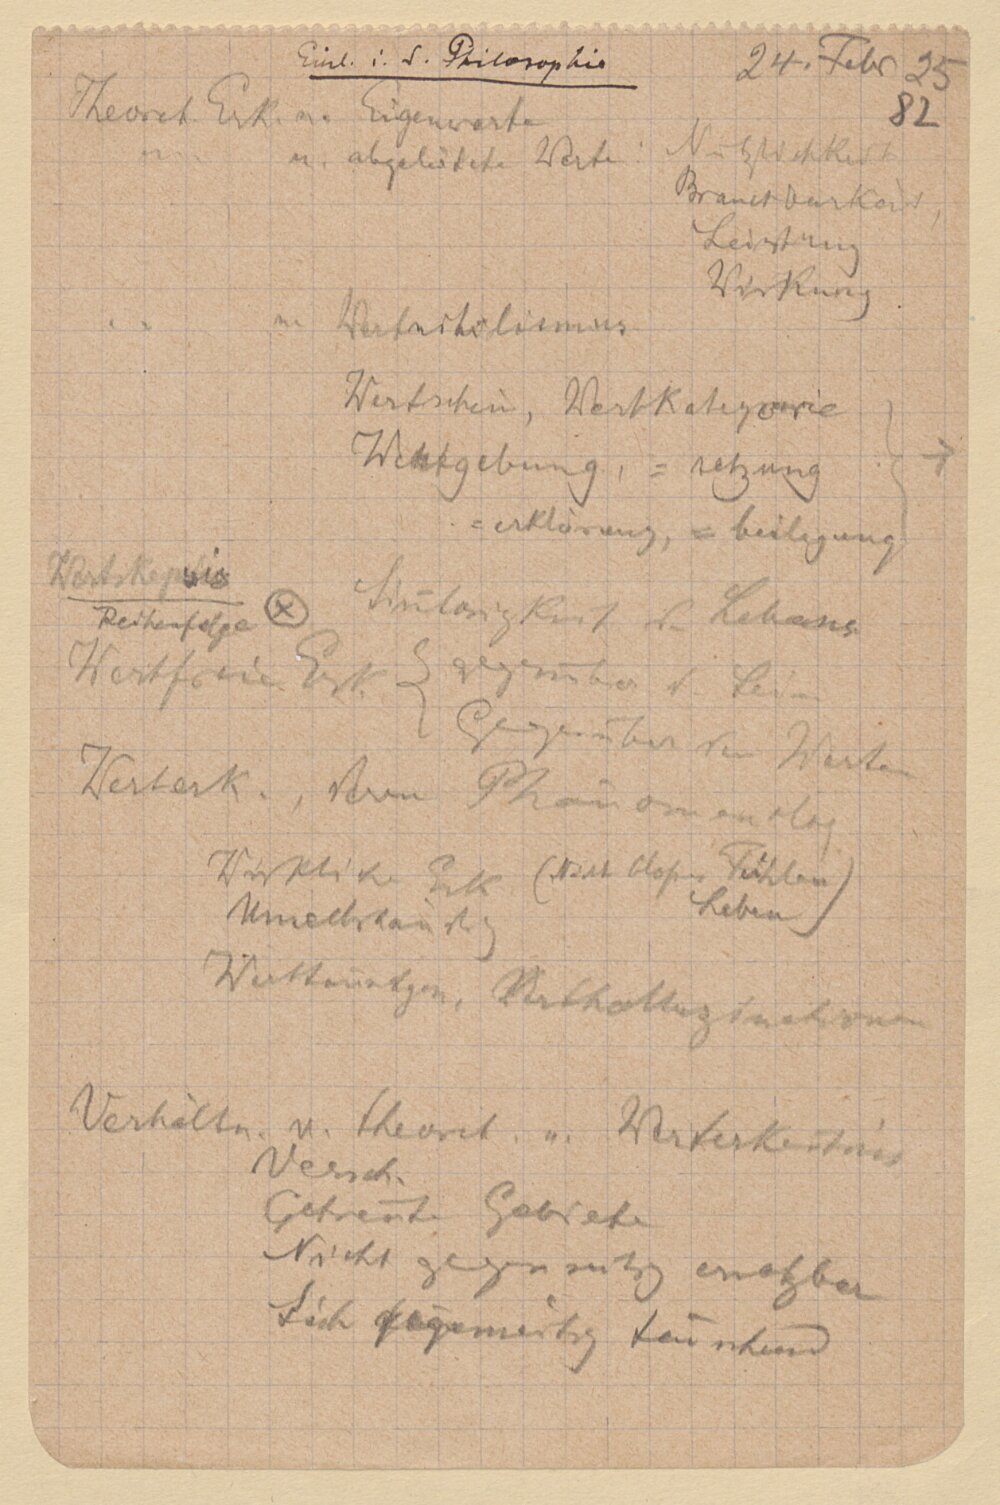 Einl. i. d. Philosophie
24. Febr 25
82
Theoret. Erk. u. Eigenwerte
" " u. abgeleitete Werte: Nützlichkeit
Brauchbarkeit,
Leistung
Wirkung
" " u. Wertnihilismus
Wertschein, Wertkategorie
Wertgebung, = setzung →
= erklärung, = beilegung
Wertskepsis
Reihenfolge ⊗ Sinnlosigkeit d. Lebens
Wertfreie Erk. { gegenüber d. Sein
Gegenüber den Werten
Werterk., deren Phänomenolog
Wirkliche Erk (Nicht bloßes Fühlen
Leben)
Unselbständig
Werttäuschgen, Werthalluzinationen
Verhältn. v. theoret. u. Werterkenntnis
Versch.
Getrennte Gebiete
Nicht gegenseitig ersetzbar
Sich gegenseitig täuschend